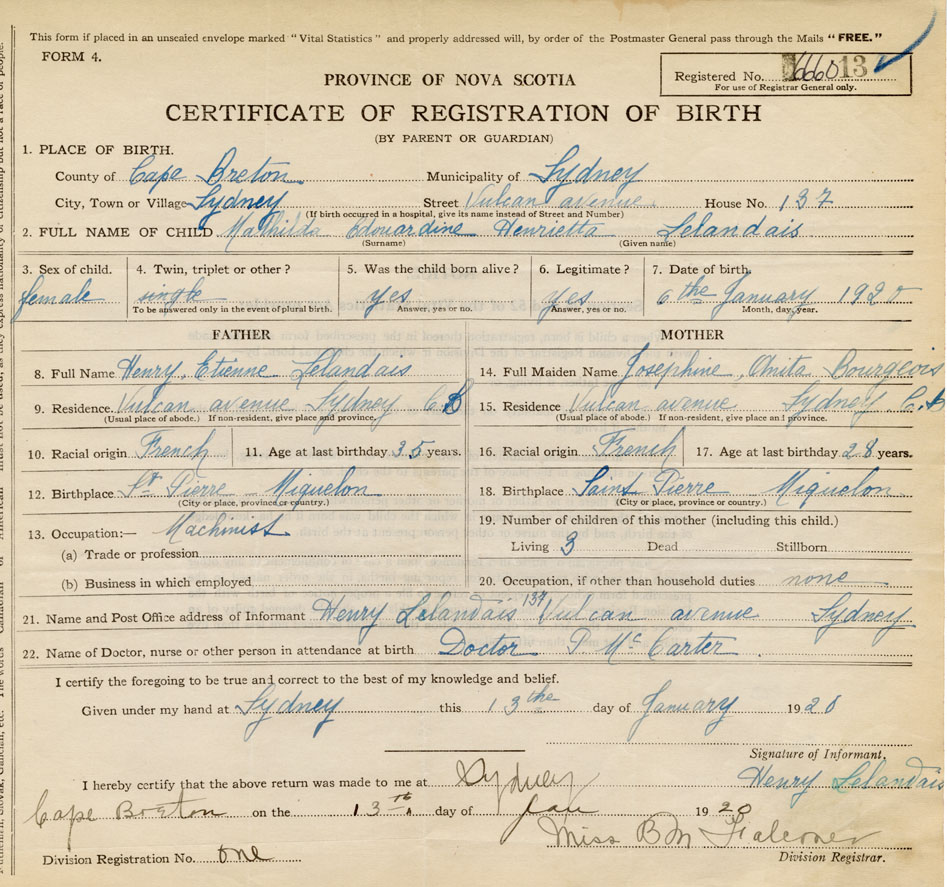 This form if placed in an unsealed envelope marked "Vital Statistics" and properly addressed will, by order of the Postmaster General pass through the Mails "FREE."
FORM 4.
Registered No. 13
For use of Registrar General only.
PROVINCE OF NOVA SCOTIA
CERTIFICATE OF REGISTRATION OF BIRTH
(BY PARENT OR GUARDIAN)
1. PLACE OF BIRTH.
County of Cape Breton Municipality of Sydney
City, Town or Village Sydney Street Vulcan avenue House No. 137
(If birth occurred in a hospital, give its name instead of Street and Number)
2. FULL NAME OF CHILD Mathilda Edouardine Henrietta Lelandais
(Surname) (Given name)
3. Sex of child. 4. Twin, triplet or other? 5. Was the child born alive? 6. Legitimate? 7. Date of birth.
female single yes yes 6 the January 1920
To be answered only in the event of plural birth. Answer, yes or no. Answer, yes or no. Month, day, year.
FATHER MOTHER
8. Full Name Henry Etienne Lelandais 14. Full Maiden Name Josephine Anita Bourgeois
9. Residence Vulcan avenue Sydney C.B 15. Residence Vulcan avenue Sydney C.B
(Usual place of abode.) If non-resident, give place and province. (Usual place of abode.) If non-resident, give place and province.
10. Racial origin French 11. Age at last birthday 35 years. 16. Racial origin French 17. Age at last birthday 28 years.
12. Birthplace St Pierre Miquelon 18. Birthplace Saint Pierre Miquelon
(City or place, province or country.) (City or place, province or country.)
13. Occupation:— Machinist 19. Number of children of this mother (including this child.)
(a) Trade or profession Living 3 Dead Stillborn
(b) Business in which employed 20. Occupation, if other than household duties none
21. Name and Post Office address of Informant Henry Lelandais 137 Vulcan avenue Sydney
22. Name of Doctor, nurse or other person in attendance at birth Doctor P Mc Carter
I certify the foregoing to be true and correct to the best of my knowledge and belief.
Given under my hand at Sydney this 13 the day of January 1920
Signature of Informant.
I hereby certify that the above return was made to me at Sydney Henry Lelandais
Cape Breton on the 13th day of Jan 1920
Miss B M Falconer
Division Registration No. one Division Registrar.